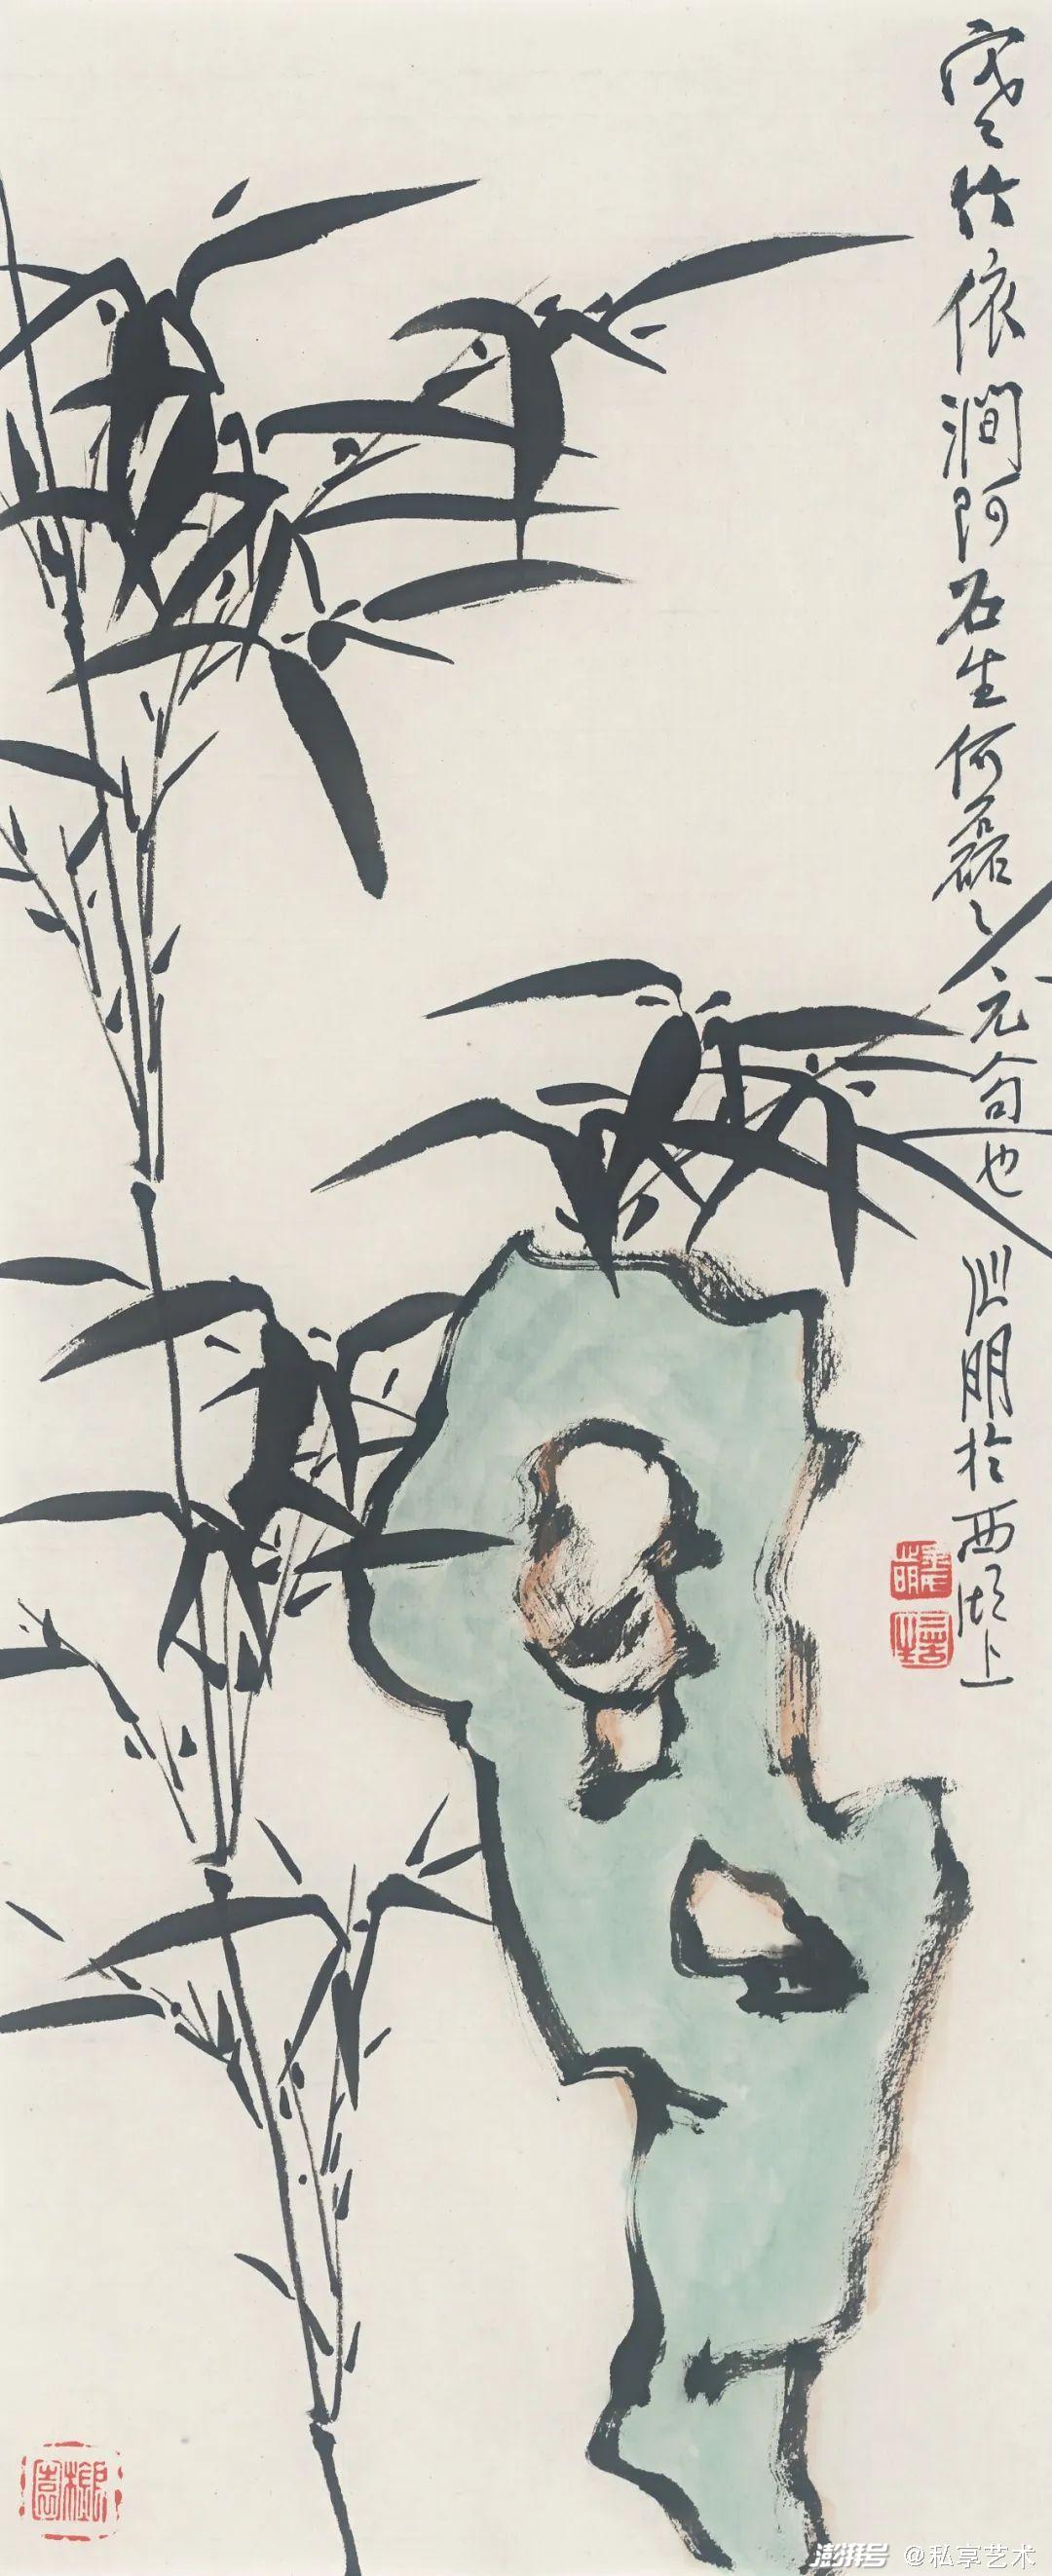 寒竹依澗阿石生何磊々元句也 山明於西湖上
澎湃号 @私享艺术